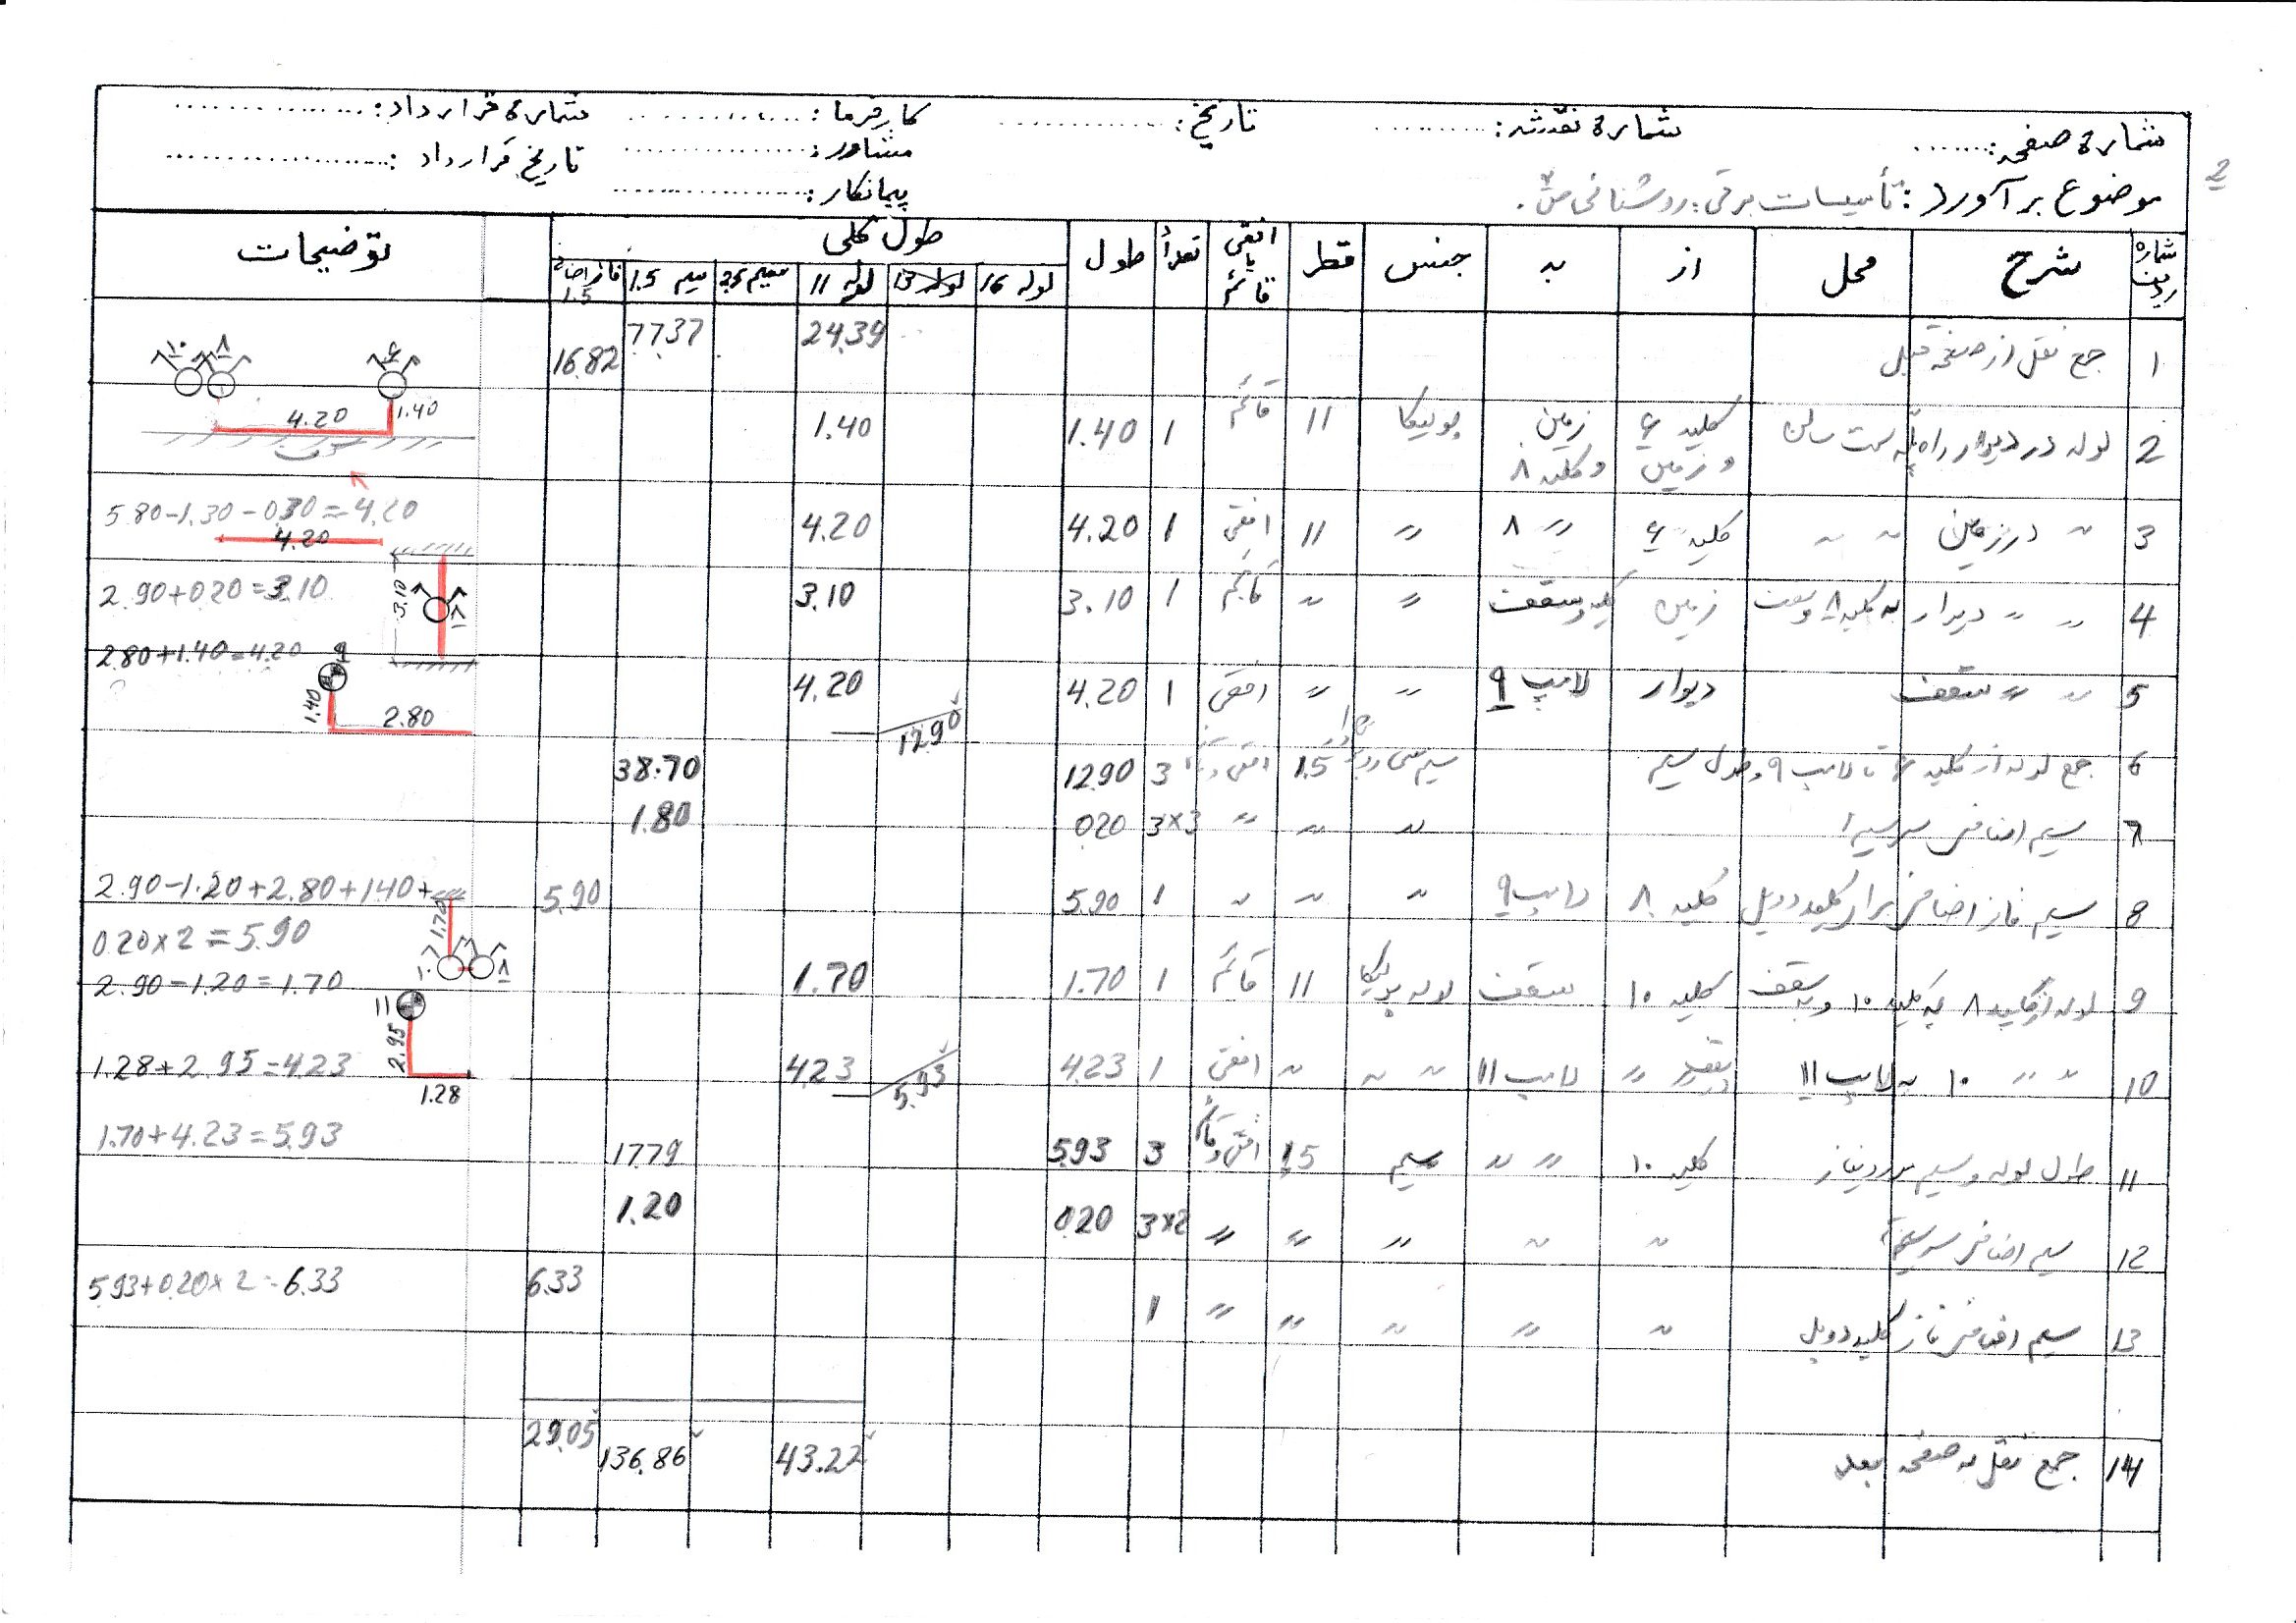 شماره صفحه: ....... شماره نقشه: ......... تاریخ: ............. کارفرما: ............. شماره قرارداد: ..............
مشاور: ................ تاریخ قرارداد: ...................
موضوع برآورد: تأسیسات برقی: روشنائی پیمانکار: ..................
2
شماره ردیف شرح محل از به جنس قطر افقی یا قائم تعداد طول طول کلی توضیحات
لوله 16 لوله 13 لوله 11 سیم 2.5 سیم 1.5 فاز اضافی 1.5
1 جمع نقل از صفحه قبل 24.39 77.37 16.82
۱۰ ۸ ۶
4.20 1.40
2 لوله در دیوار راه پله سمت سالن کلید ۶ زمین پولیکا 11 قائم 1 1.40 1.40
و زمین و کلید ۸
3 " در زمین " " کلید ۶ " ۸ " 11 افقی 1 4.20 4.20 5.80-1.30-0.30=4.20
4.20
4 " " دیوار به کلید ۸ و سقف زمین کلید و سقف " " قائم 1 3.10 3.10 2.90+0.20=3.10
3.10 ۸
5 " " سقف دیوار لامپ ۹ " " افقی 1 4.20 4.20 2.80+1.40=4.20
12.90
۹ 1.40 2.80
6 جمع لوله از کلید ۶ تا لامپ ۹ و طول سیم 1.5 3 12.90 38.70
7 سیم اضافی سر سیم‌ها " " " 3×3 0.20 1.80
8 سیم فاز اضافی برای کلید دوبل کلید ۸ لامپ ۹ " " " 1 5.90 5.90 2.90-1.20+2.80+1.40+
0.20×2=5.90
1.70 ۱۰ ۸
9 لوله از کلید ۸ به کلید ۱۰ و به سقف کلید ۱۰ سقف لوله پولیکا 11 قائم 1 1.70 1.70 2.90-1.20=1.70
10 " " ۱۰ به لامپ ۱۱ " لامپ ۱۱ " " " افقی 1 4.23 4.23 1.28+2.95=4.23
5.93
۱۱ 2.95 1.28
11 طول لوله و سیم مورد نیاز کلید ۱۰ " " سیم 1.5 افقی و قائم 3 5.93 17.79 1.70+4.23=5.93
12 سیم اضافی سر سیم‌ها " " " " " 3×2 0.20 1.20
13 سیم اضافی فاز کلید دوبل " " " " " 1 6.33 5.93+0.20×2=6.33
14 جمع نقل به صفحه بعد 43.22 136.86 29.05